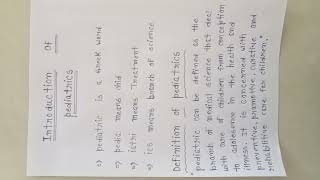 Introduction of
pediatrics
⇒ pediatric is a Greek word
⇒ pedic means child
⇒ iatri means Treatment
⇒ ics means branch of science
Definition of pediatrics
"pediatric can be defined as the
branch of medical science that deal
with care of children from conception
to adolesence in the health and
illness. It is concerned with
preventive, promotive, curative and
rehabilitative care for children."